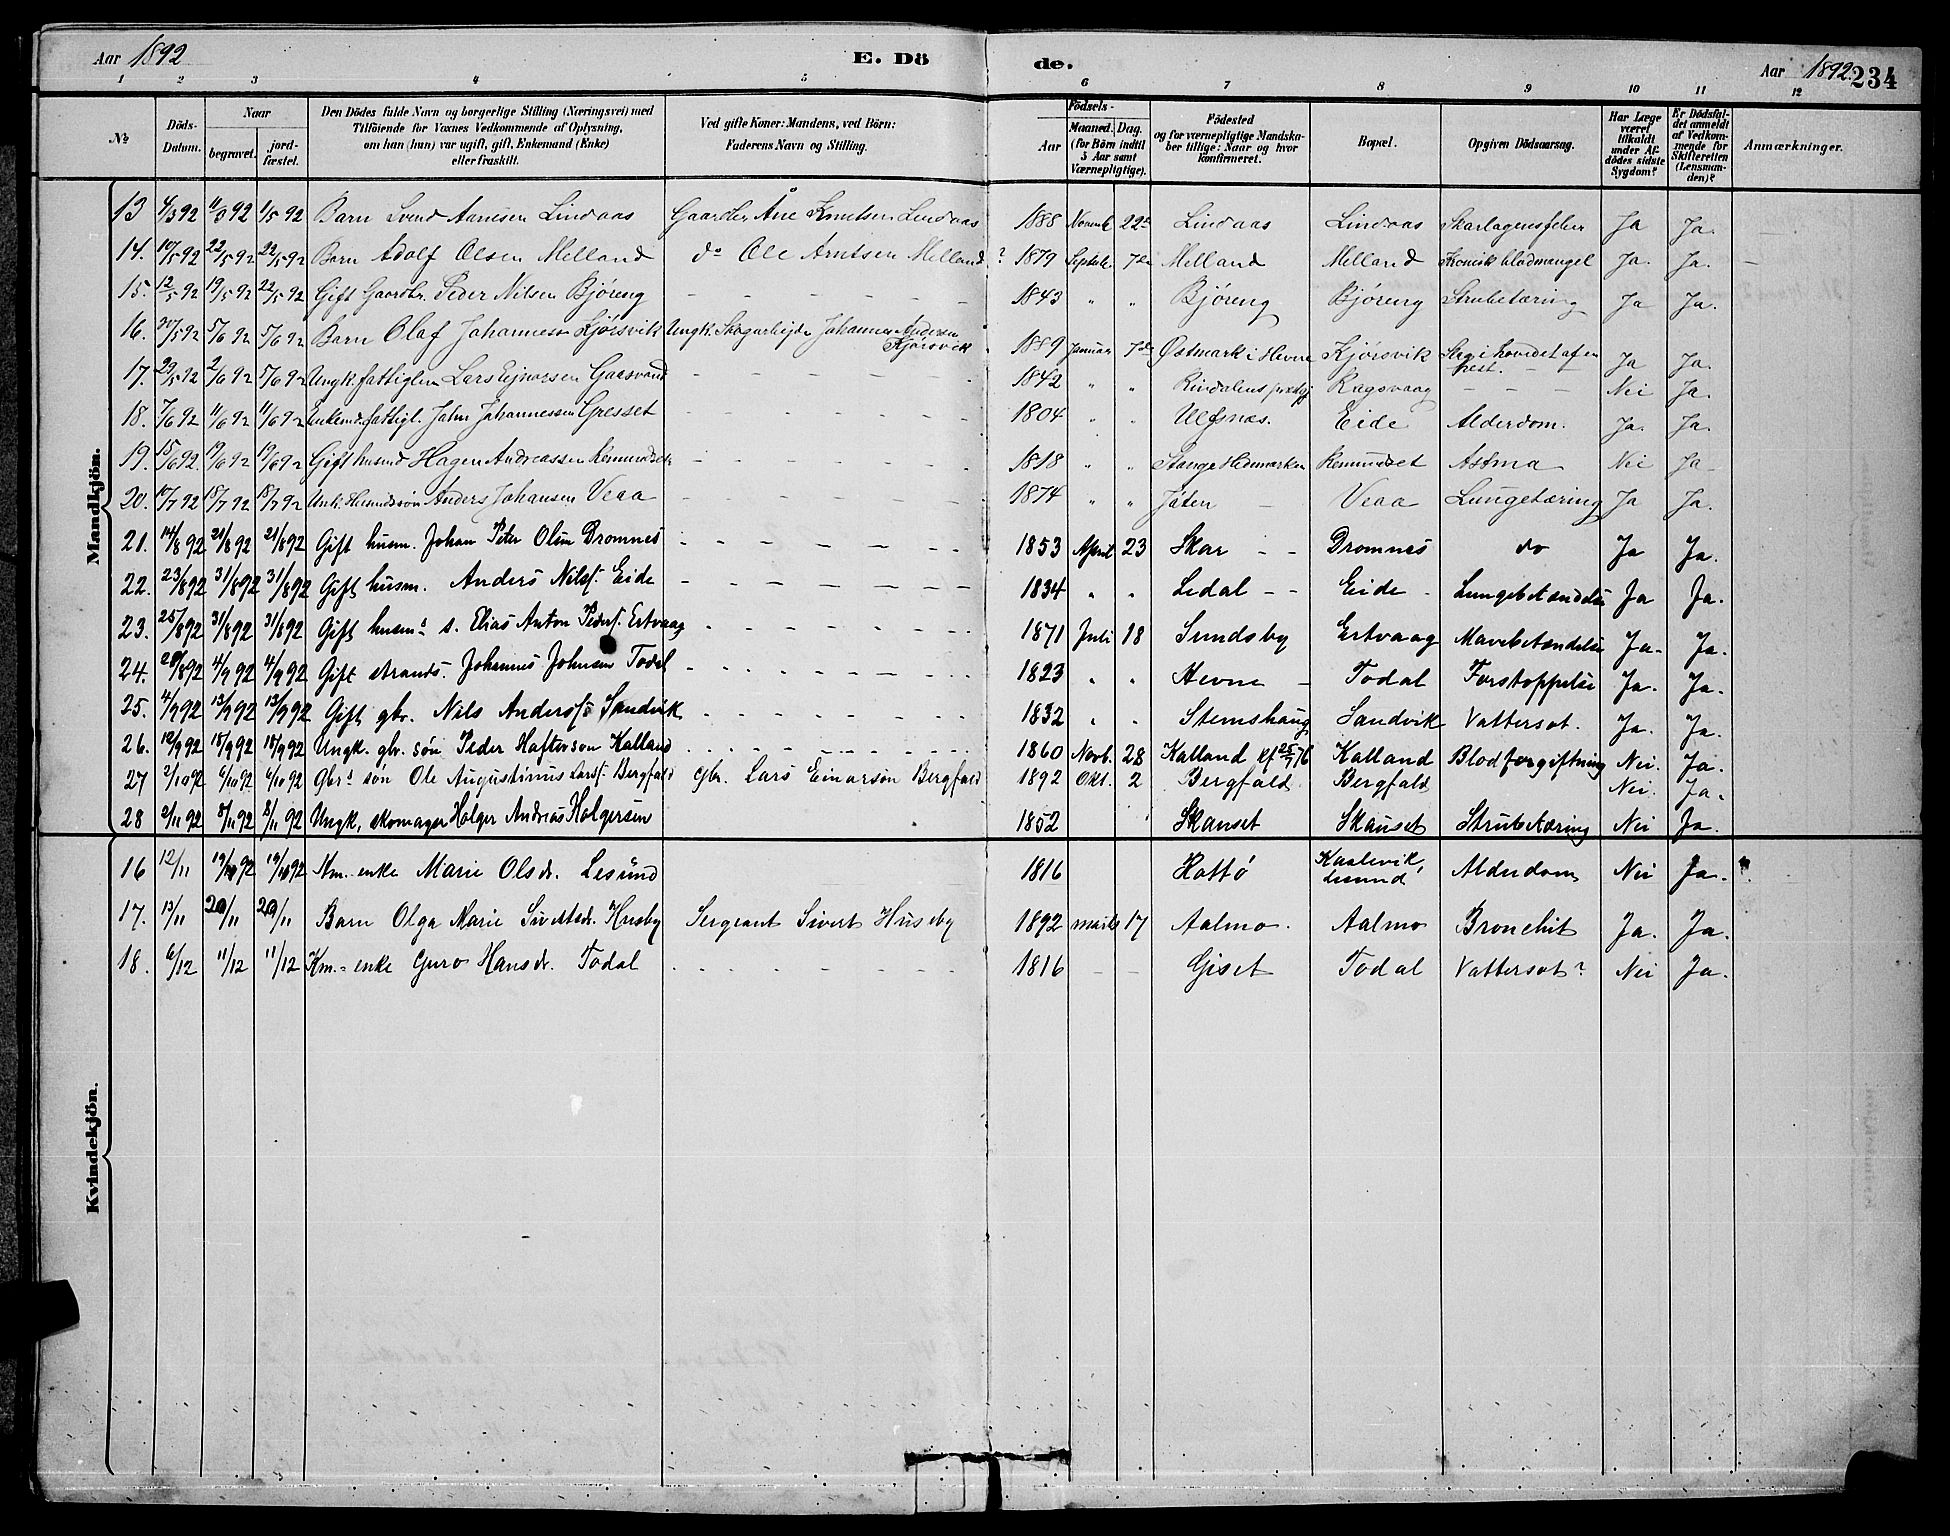 Aar 1892 E. Dö de. Aar 1892 234
1 2 3 4 5 6 7 8 9 10 11 12
№ Döds-Datum. Naar begravet. jord-fæstet. Den Dödes fulde Navn og borgerlige Stilling (Næringsvei) med Tilföiende for Voxnes Vedkommende af Oplysning, om han (hun) var ugift, gift, Enkemand (Enke) eller fraskilt. Ved gifte Koner: Mandens, ved Börn: Faderens Navn og Stilling. Födsels- Aar Maaned. Dag. (for Börn indtil 5 Aar samt Værnepligtige). Födested og for værnepligtige Mandskaber tillige: Naar og hvor konfirmeret. Bopæl. Opgiven Dödsaarsag. Har Læge været tilkaldt under Afdödes sidste Sygdom? Er Dödsfaldet anmeldt af Vedkommende for Skifteretten (Lensmanden)? Anmærkninger.
Mandkjön.
13 4/3 92 11/3 92 1/5 92 Barn Svend Aanesen Lindaas Gaardbr Åne Knutsen Lindaas 1888 Novemb 22 Lindaas Lindaas Skarlagensfeber Ja Ja. —
14. 10/5 92 22/5 92 22/5 92 Barn Adolf Olsen Melland do Ole Arntsen Melland ? 1879 Septebr. 7de Melland Melland Kronisk blodmangel Ja. Ja. —
15. 12/5 92 19/5 92 22/5 92 Gift Gaardbr. Peder Nilsen Björeng 1843 " " Björeng Björeng Strubetæring Ja Ja.
16. 30/5 92 5/6 92 5/6 92 Barn Olaf Johannesen Kjörsvik Ungk. Skogarbejder Johannes Andersen Kjörsvik 1889 Januar 7de Østmark i Hevne Kjörsvik Slag i hovedet af en hest. Ja Ja.
17. 29/5 92 2/6 92 5/6 92 Ungk. fattiglem Lars Ejnarsen Gaasvand 1842 " " Rindalens prestgj Rogsvaag — — — Nei Ja.
18. 7/6 92 11/6 92 11/6 92 Enkemd fattigl. John Johannessen Gresset 1804 " Ulfsnæs. Eide Alderdom. Ja. Ja.
19. 15/6 92. 19/6 92 19/6 92 Gift husmd Hagen Andreassen Romundset 1818 " " Stange Hedmarken Romundset Astma Nei Ja
20. 10/7 92 18/7 92 18/7 92 Unk. Husmdssön Anders Johansen Veaa 1874 " " Jöten — Veaa Lungetæring Ja Ja.
21. 14/8 92 21/8 92 21/8 92 Gift husm. Johan Peter Olsen Dromnes 1853 April 23 Skar — — Dromnes do Ja Ja.
22. 23/8 92 31/8 92 31/8 92 Gift husm. Anders Nilss. Eide 1834 " " Ledal — — Eide Lungebetændelse Ja Ja.
23. 25/8 92 31/8 92 31/8 92 Gift husms s. Elias Anton Peders. Ertvaag 1871 Juli 18 Sundsby Ertvaag Mavebetændelse Ja. Ja.
24. 28/8 92 4/9 92 4/9 92 Gift strands. Johannes Johnsen Todal 1823 " " Hevne — Todal Forstoppelse Ja. Ja.
25. 4/9 92 13/9 92 13/9 92 Gift gbr. Nils Anderss. Sandvik 1832 " " Stemshaug Sandvik Vattersot. Ja. Ja.
26. 12/9 92 18/9 92 18/9 92 Ungk. gbr. sön Peder Haftorson Kalland 1860 Novb. 28 Kalland kf 25/6 76 Kalland Blodforgiftning Nei. Ja.
27 2/10 92 6/10 92 6/10 92 Gbrs sön Ole Augustinus Larss. Bergfald gbr. Lars Einarsön Bergfald 1892 Okt. 2 Bergfald. Bergfald Nei. Ja.
28 2/11 92 8/11 92 8/11 92 Ungk. skomager Holger Andreas Holgersen 1852 Skanset Skanset Strubetæring Nei Ja.
Kvindekjön.
16 12/11 19/11 92 19/11 92 Km. enke Marie Olsdr. Lesund 1816 Hattö Kaalevik Lesund Alderdom Nei Ja.
17. 13/11 20/11 20/11 Barn Olga Marie Sivertsdr. Husby Sergeant Sivert Huseby 1892 marts 17 Aalmo. Aalmo Bronchit Ja. Ja.
18. 6/12 11/12 11/12 Km. enke Guro Hansdr. Todal 1816 — — Giset Todal Vattersot? Nei Ja.